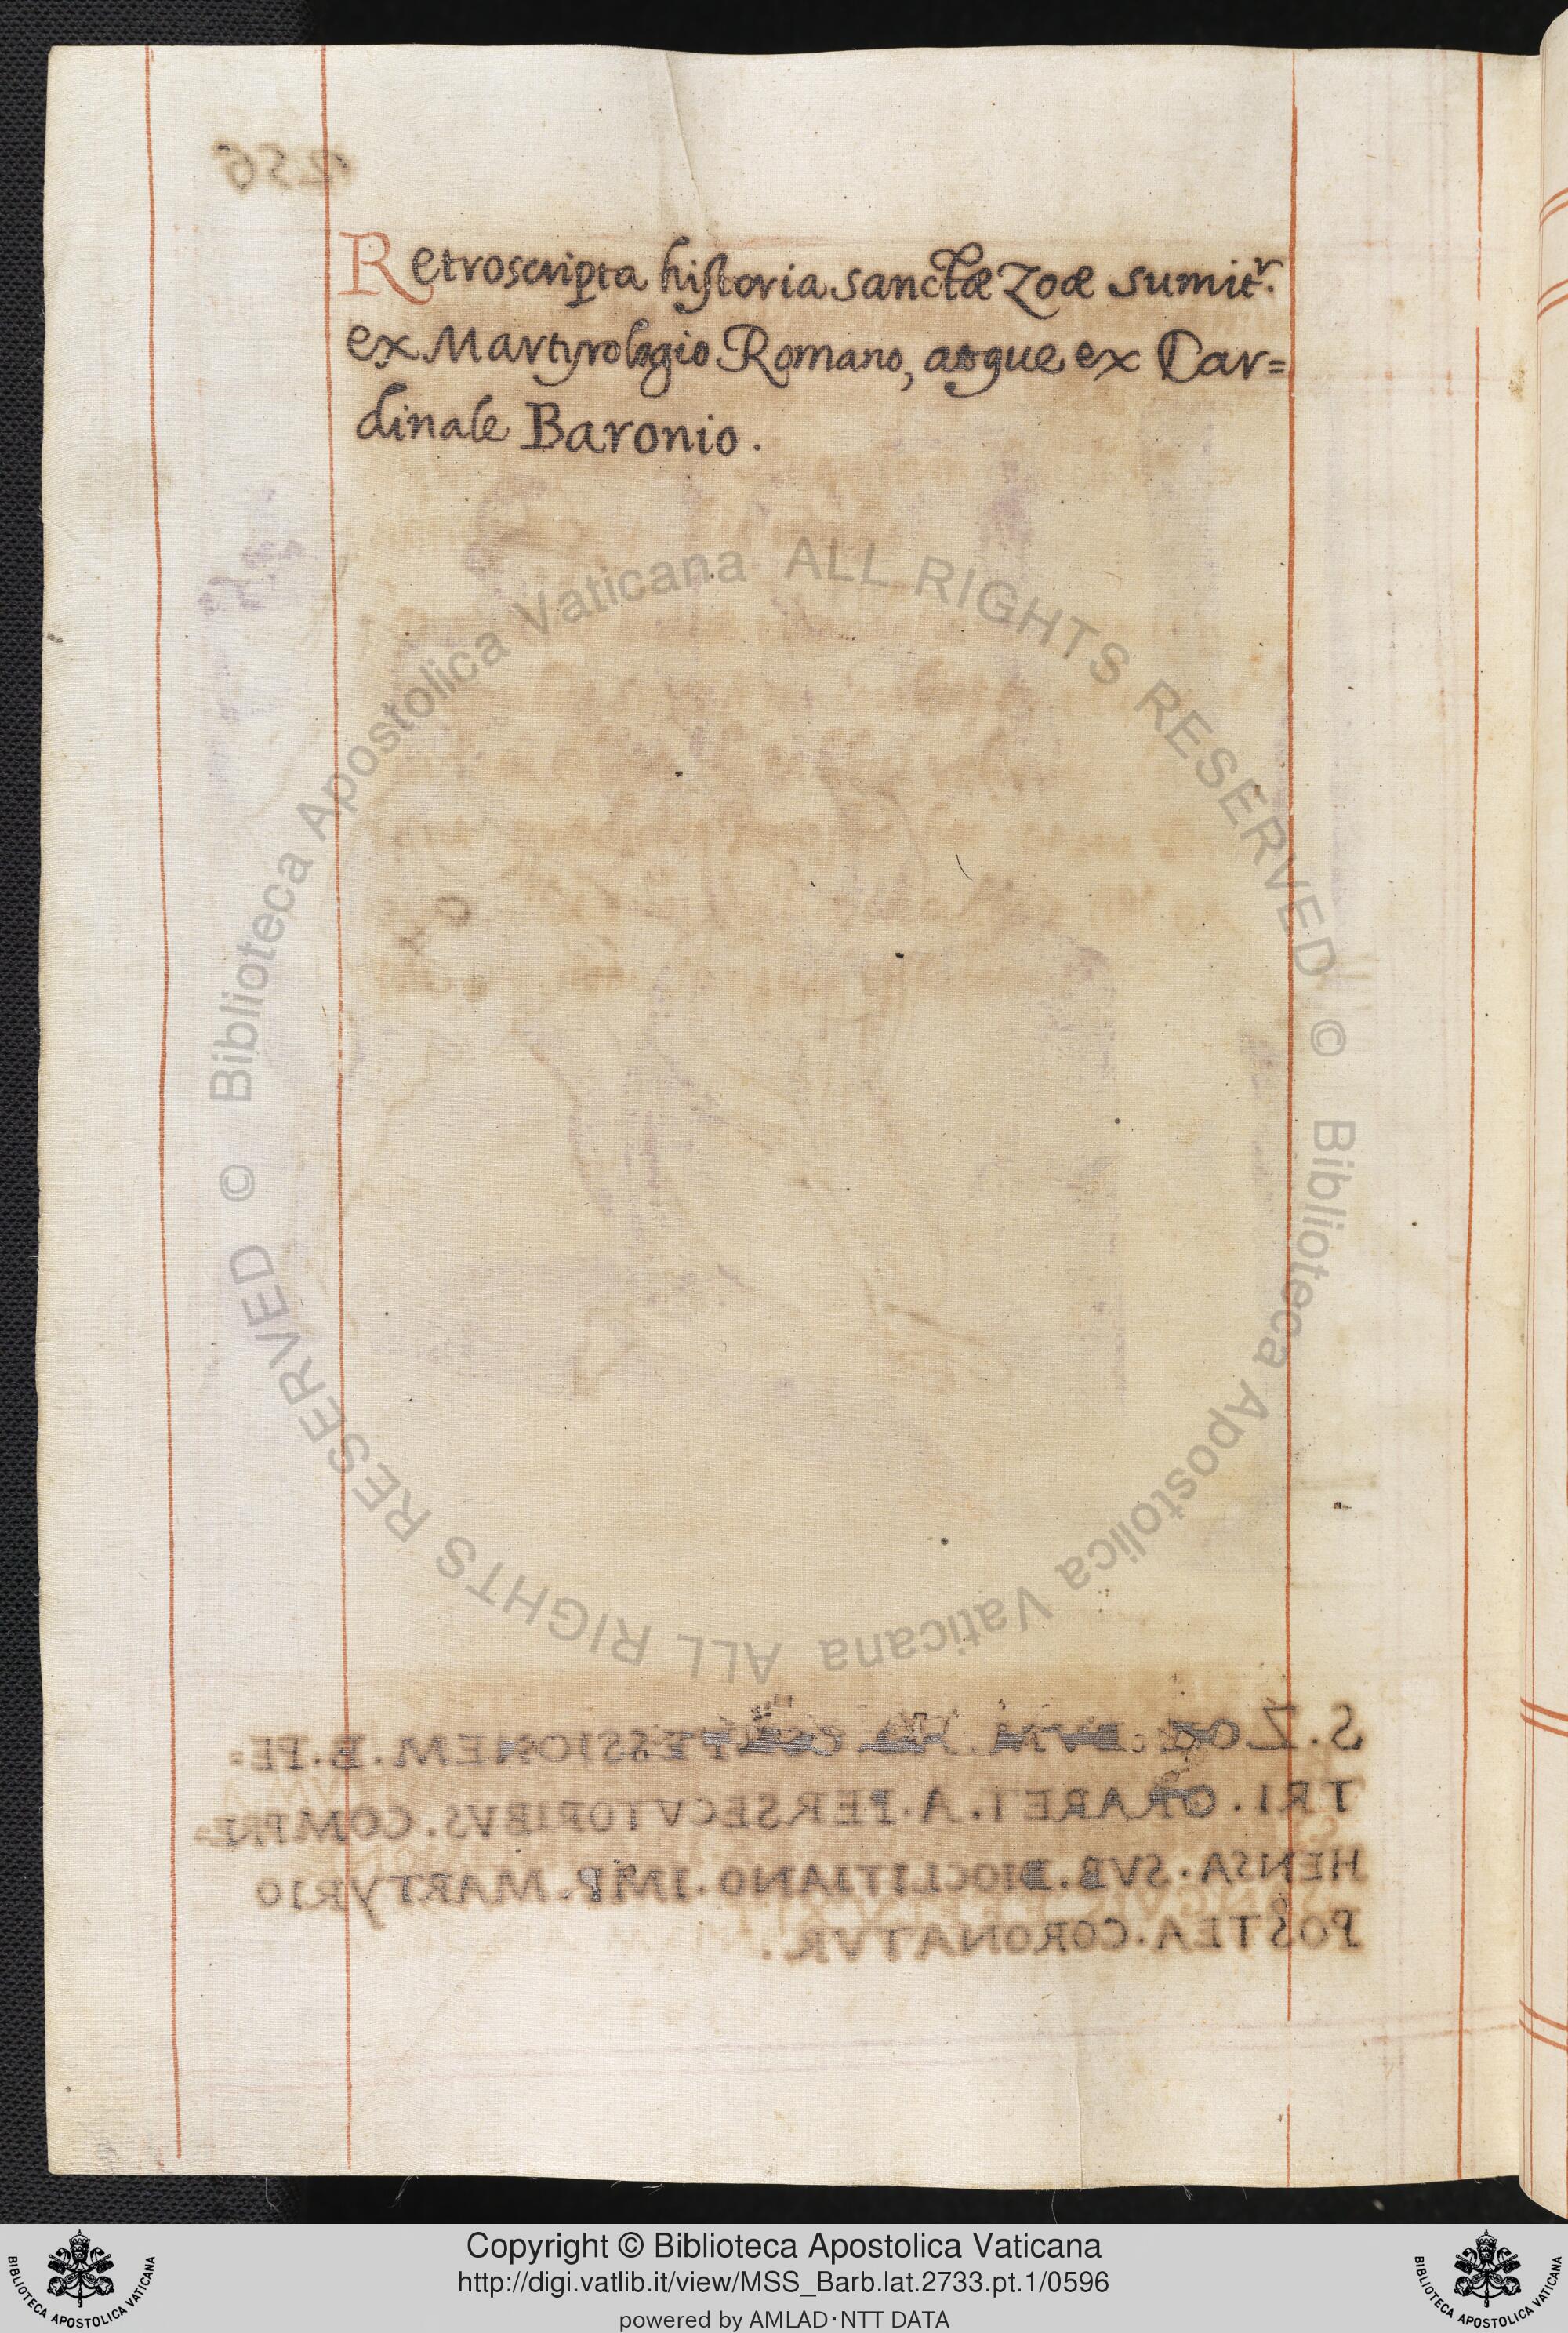 Retroscripta historia sanctæ Zoæ sumitr.
ex Martyrologio Romano, atque ex Car=
dinale Baronio.
S. ZOE. DVM. AD. CONFESSIONEM. B. PE-
TRI. ORARET. A. PERSECVTORIBVS. COMPRE-
HENSA. SVB. DIOCLITIANO. IMP. MARTYRIO
POSTEA. CORONATVR.
© Biblioteca Apostolica Vaticana ALL RIGHTS RESERVED
© Biblioteca Apostolica Vaticana ALL RIGHTS RESERVED
Copyright © Biblioteca Apostolica Vaticana
http://digi.vatlib.it/view/MSS_Barb.lat.2733.pt.1/0596
powered by AMLAD·NTT DATA
BIBLIOTECA APOSTOLICA VATICANA
BIBLIOTECA APOSTOLICA VATICANA